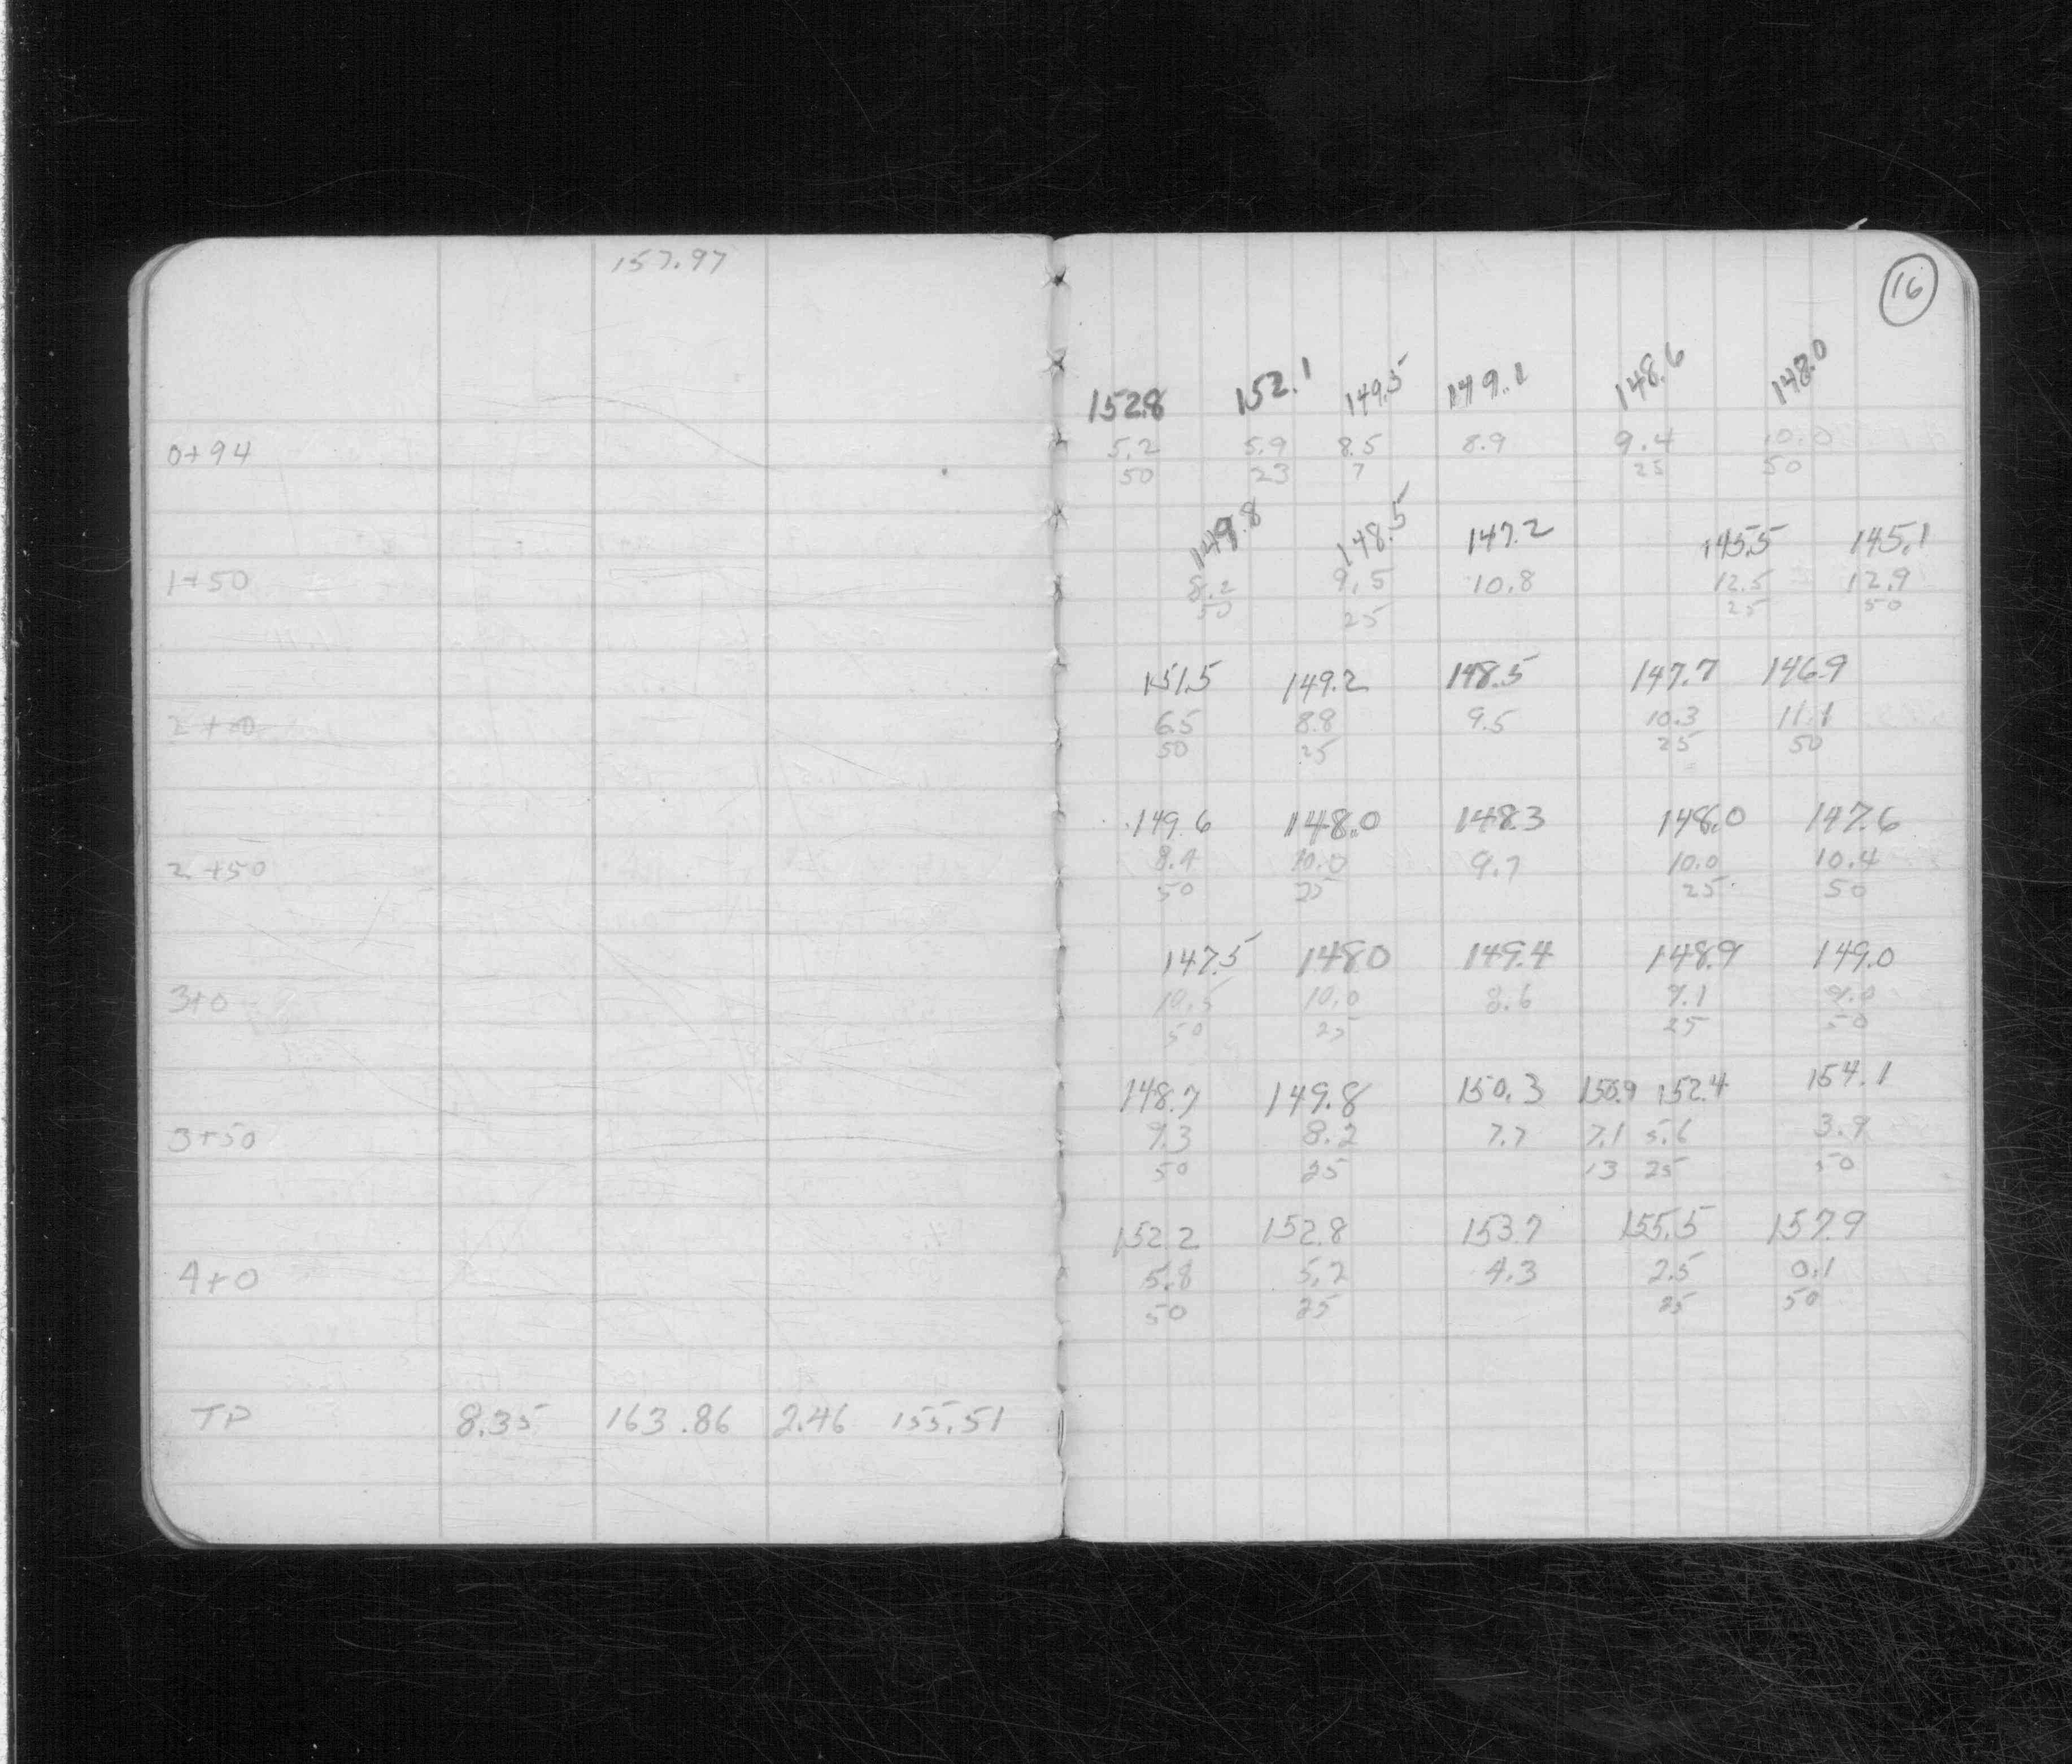 157.97
16
152.8 152.1 149.5 149.1 148.6 148.0
0+94 5.2 5.9 8.5 8.9 9.4 10.0
50 23 7 25 50
149.8 148.5 147.2 145.5 145.1
1+50 8.2 9.5 10.8 12.5 12.9
50 25 25 50
151.5 149.2 148.5 147.7 146.9
2+00 6.5 8.8 9.5 10.3 11.1
50 25 25 50
149.6 148.0 148.3 148.0 147.6
2+50 8.4 10.0 9.7 10.0 10.4
50 25 25 50
147.5 148.0 149.4 148.9 149.0
3+0 10.5 10.0 8.6 9.1 9.0
50 25 25 50
148.7 149.8 150.3 150.9 152.4 154.1
3+50 9.3 8.2 7.7 7.1 5.6 3.9
50 25 13 25 50
152.2 152.8 153.7 155.5 157.9
4+0 5.8 5.2 4.3 2.5 0.1
50 25 25 50
TP 8.35 163.86 2.46 155.51